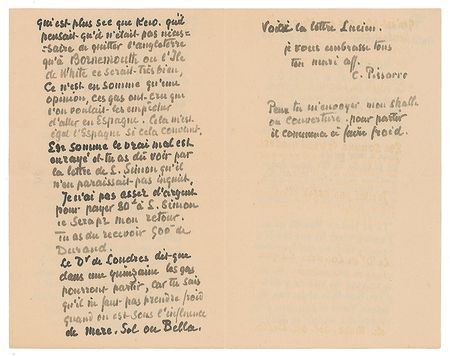 qui est plus sec que Kew. qu'il
pensait qu'il n'était pas néces-
-saire de quitter l'angleterre
qu'à Bornemouth ou l'Ile
de White ce serait très bien,
Ce n'est en somme qu'une
opinion, ces gas ont cru que
l'on voulait les empêcher
d'aller en Espagne. Cela m'est
égal l'Espagne si cela convient.
En somme le vrai mal est
enrayé et tu as dû voir par
la lettre de L. Simon qu'il
n'en paraissait pas inquiet,
Je n'ai pas assez d'argent
pour payer 80ᶠ à L. Simon
le Serapx mon retour.
Tu as dû recevoir 900ᶠ de
Durand.
Le Dʳ de Londres dit que
dans une quinzaine les gas
pourront partir, car tu sais
qu'il ne faut pas prendre froid
quand on est sous l'influence
de Merc. Sol ou Bella.
Voilà la lettre Lucien.
je vous embrasse tous
ton mari aff.
C. Pissarro
Peux tu m'envoyer mon shall
ou couverture pour partir
il commence à faire froid.